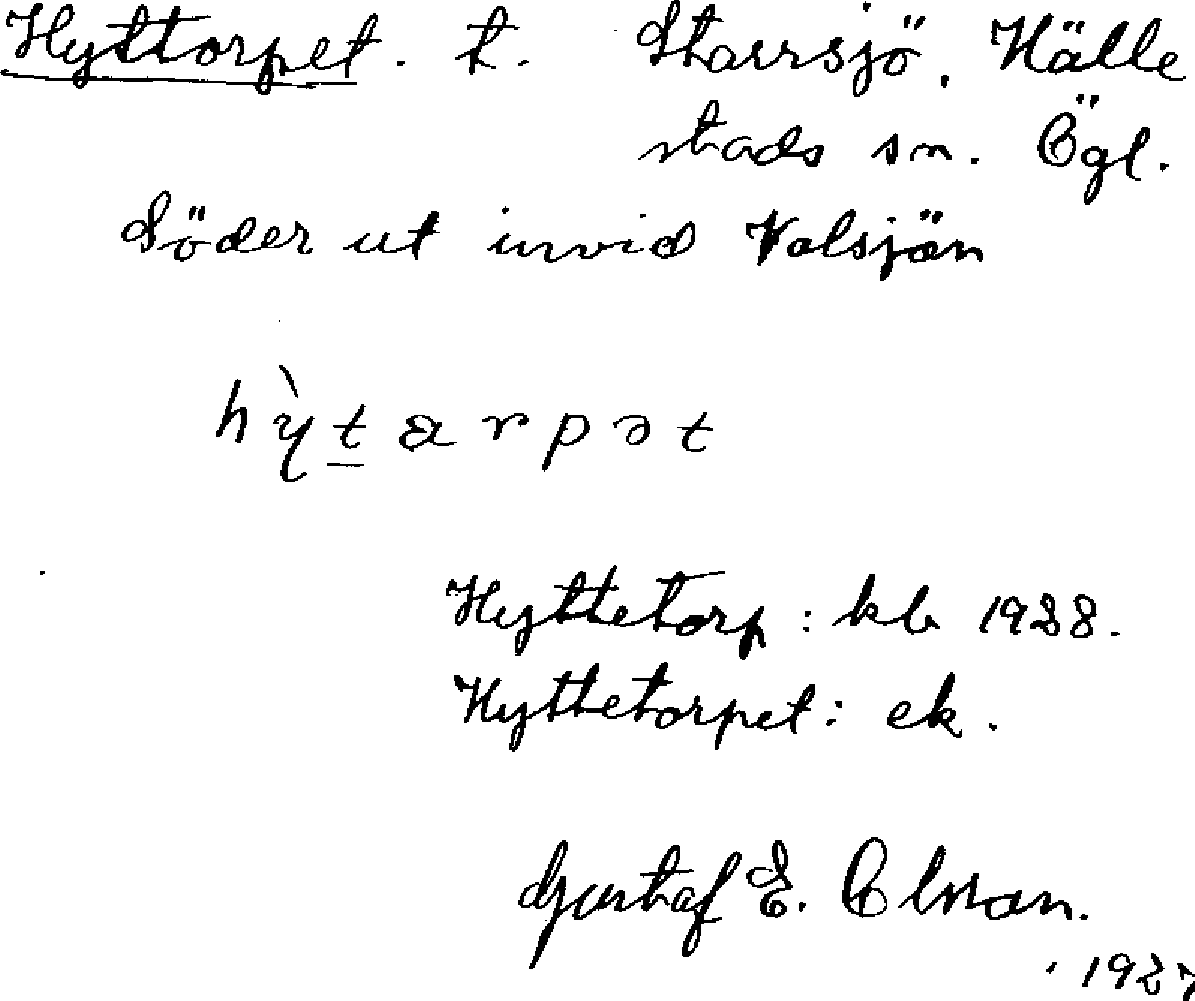 Hyttorpet. t. Starrsjö, Hälle
stads sn. Ögl.
Söder ut invid Valsjön
hỳtarpət
Hyttetorp: kb 1928.
Hyttetorpet: ek.
Gustaf E. Olsson.
1927